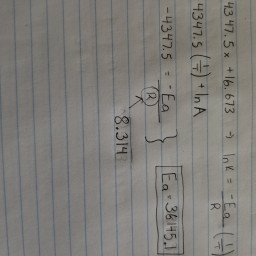 4347.5x + 16.673 → lnK = -Ea/R (1/T)
4347.5 (1/T) + lnA
-4347.5 = -Ea/R
8.314
Ea = 36145.1